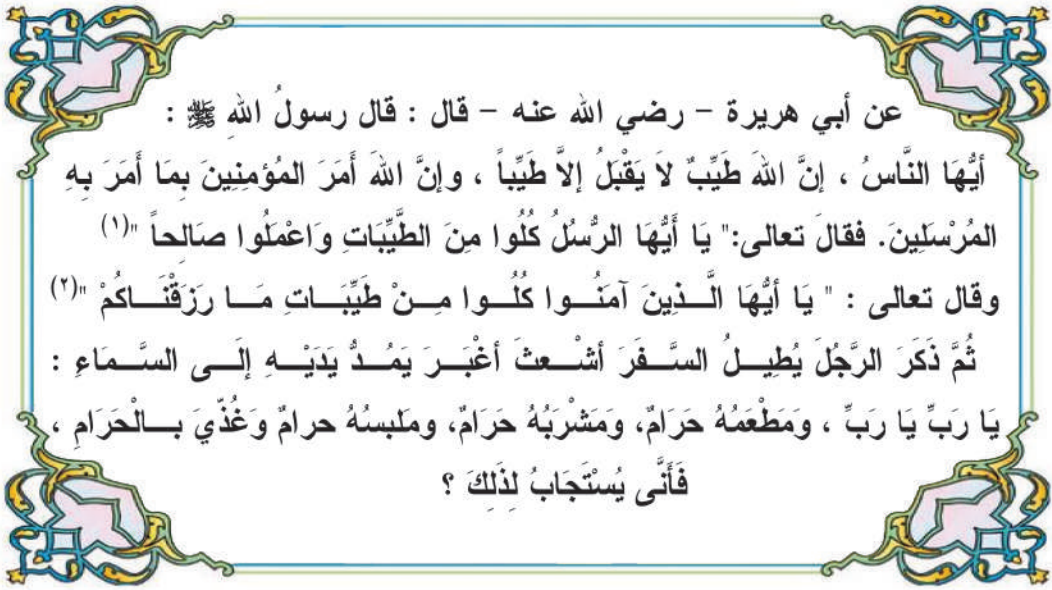 عن أبي هريرة – رضي الله عنه – قال : قال رسولُ اللهِ ﷺ :
أيُّهَا النَّاسُ ، إنَّ اللهَ طَيِّبٌ لاَ يَقْبَلُ إلاَّ طَيِّباً ، وإنَّ اللهَ أَمَرَ المُؤمِنِينَ بِمَا أَمَرَ بِهِ
المُرْسَلِينَ. فقالَ تعالى:" يَا أَيُّهَا الرُّسُلُ كُلُوا مِنَ الطَّيِّبَاتِ وَاعْمَلُوا صَالحاً "(١)
وقال تعالى : " يَا أيُّهَا الَّـــذِينَ آمَنُـــوا كُلُـــوا مِـــنْ طَيِّبَـــاتِ مَـــا رَزَقْنَـــاكُمْ "(٢)
ثُمَّ ذَكَرَ الرَّجُلَ يُطِيـــلُ السَّـــفَرَ أشْـــعثَ أغْبَـــرَ يَمُـــدُّ يَدَيْـــهِ إلَـــى السَّـــمَاءِ :
يَا رَبِّ يَا رَبِّ ، وَمَطْعَمُهُ حَرَامٌ، وَمَشْرَبُهُ حَرَامٌ، ومَلبسُهُ حرامٌ وَغُذّيَ بـــالْحَرَامِ ،
فَأَنَّى يُسْتَجَابُ لِذَلِكَ ؟